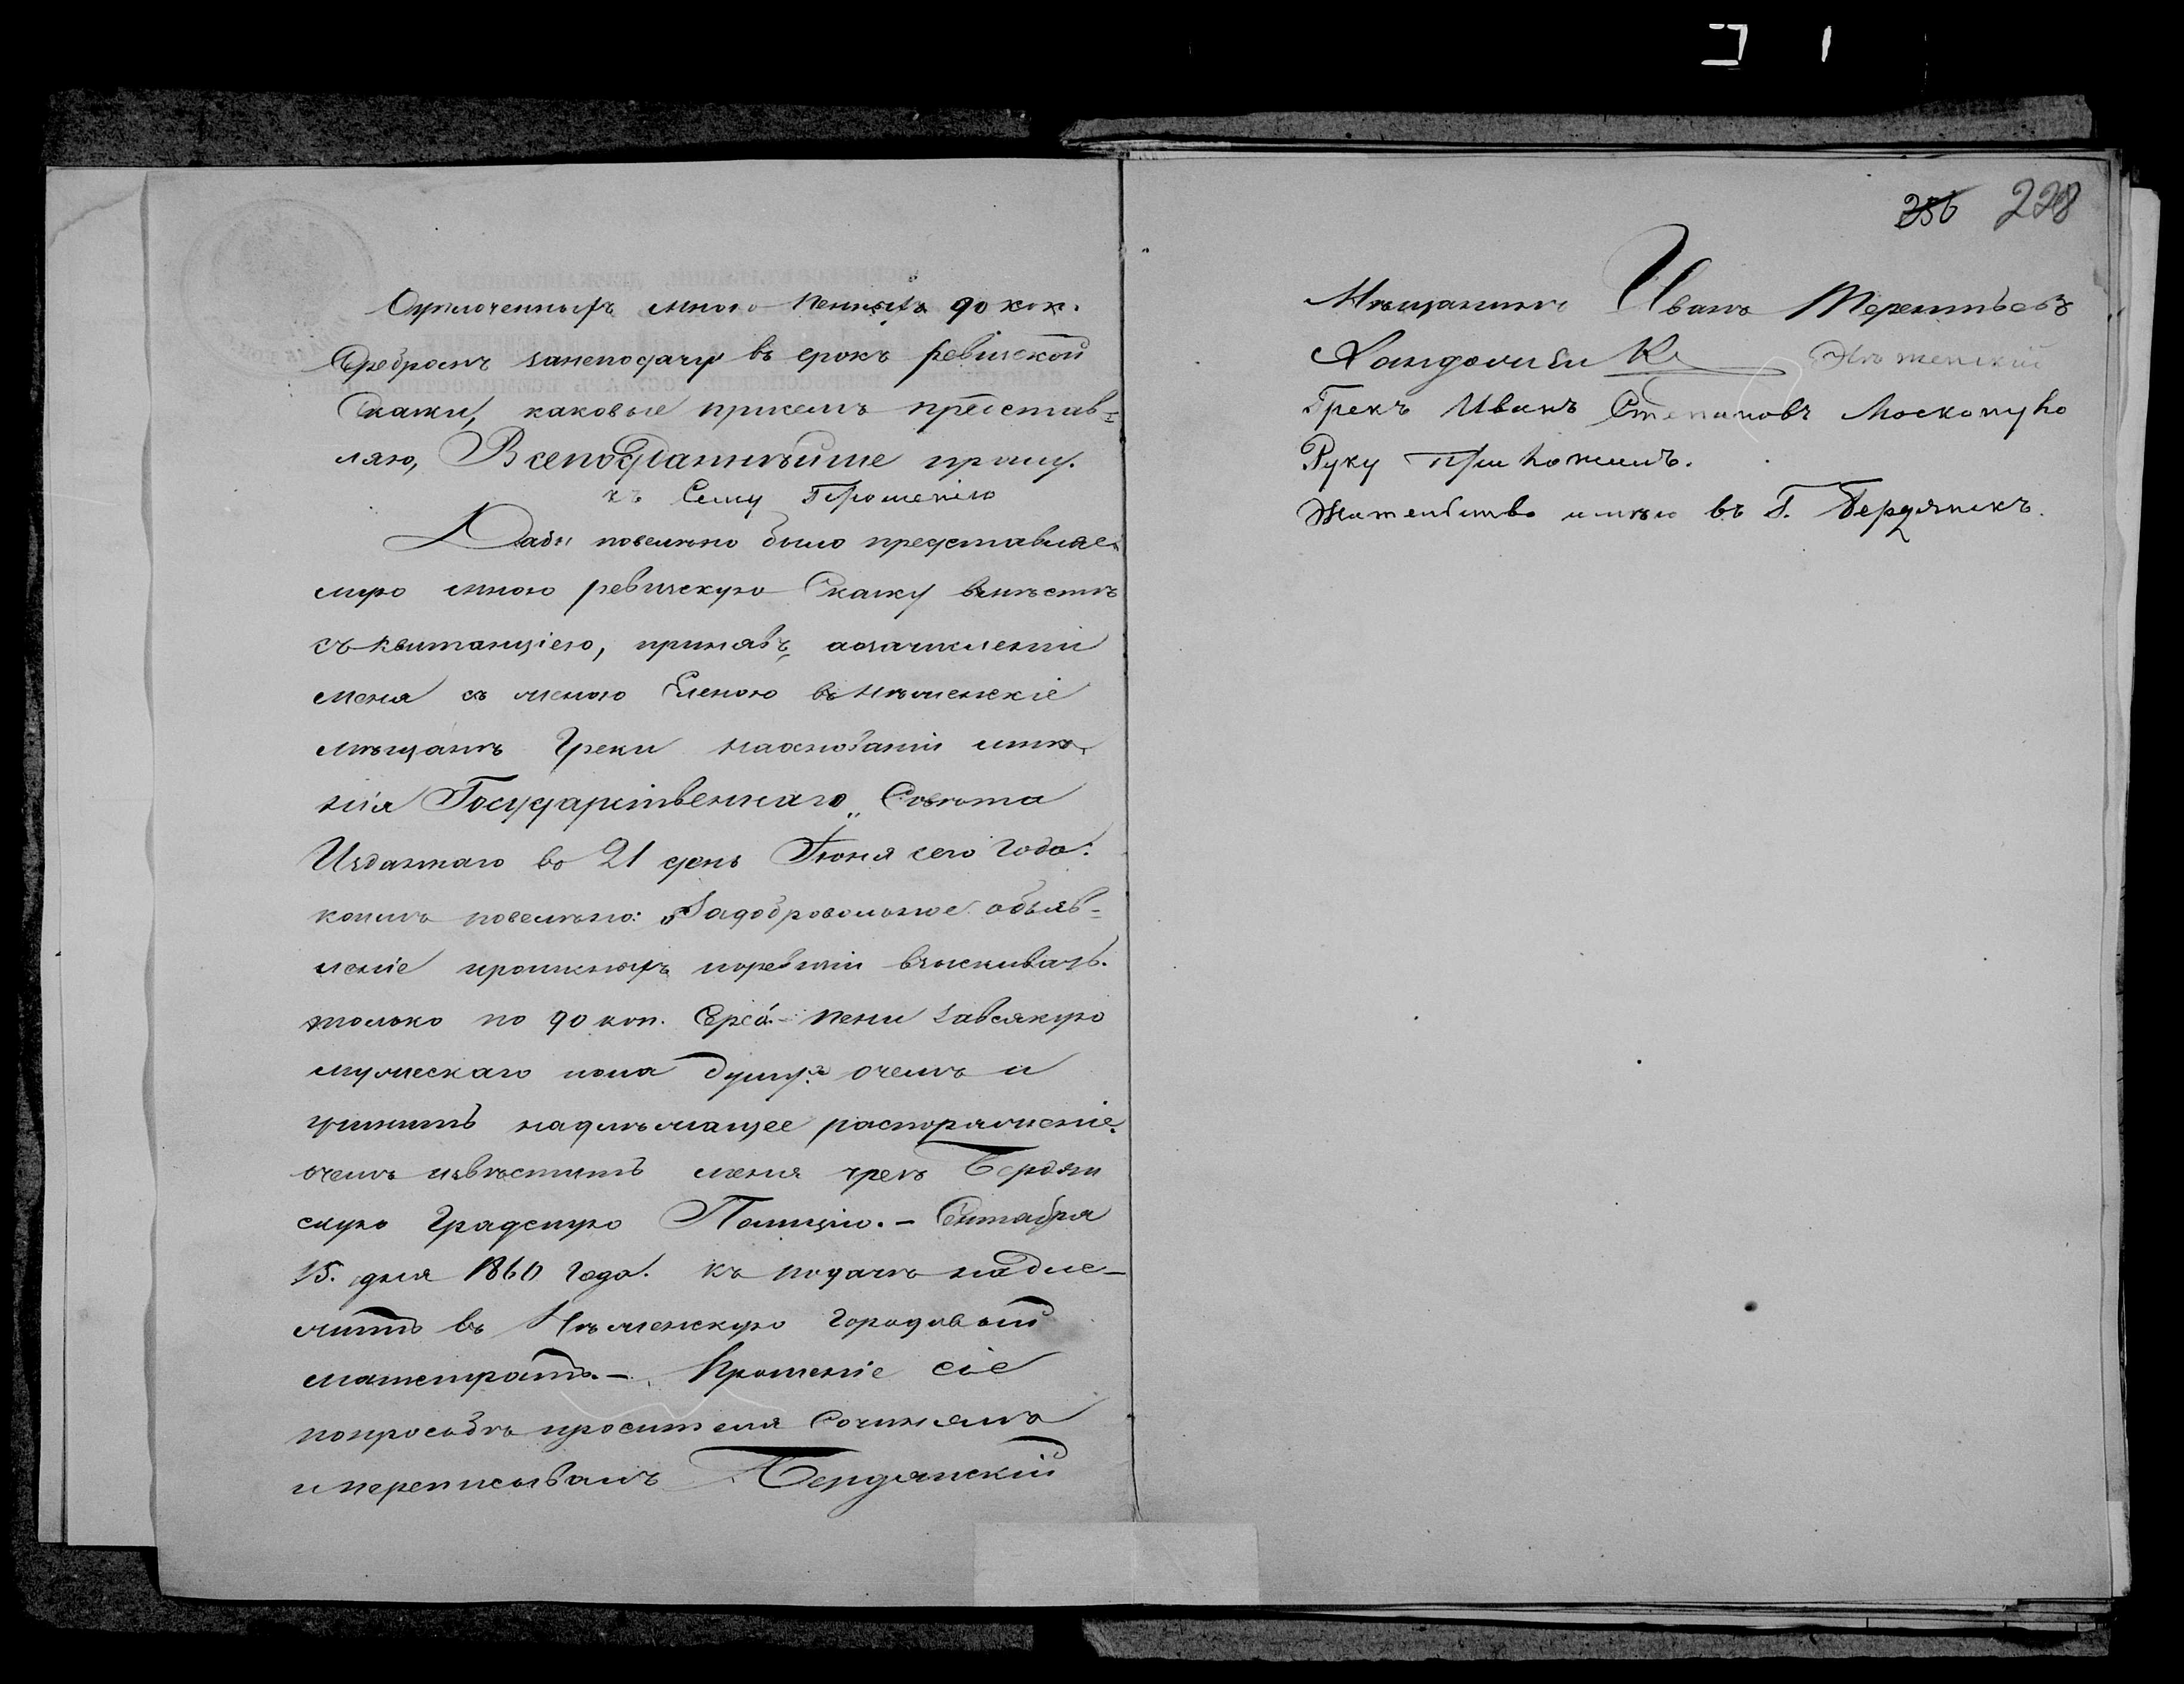 Оуплоченныхъ мною пенныхъ 90 коп.
Серебромъ занеподачу въ срокъ ревизской
Скаски, каковые присемъ представ=
ляю, Всеподданнѣйше прошу.
къ Сему Прошенію
Дабы повелѣно было представляе-
мую мною ревизскую Скаску вмѣстѣ
съ квитанціею, принявъ, о
меня съ женою Еленою въ Нѣженскіе
мѣщанъ Греки наоснованіи мнѣ-
нія Государственнаго Совѣта
Изданнаго въ 21 день Іюня сего Года.
коимъ повелѣно: „Задобровольное объяв=
леніе прописныхъ поревизіи взыскивать.
только по 90 коп. Сереб.- пени завсякую
мужескаго пола душу" очемъ и
учинить надлежащее распоряженіе.
очемъ извѣстить меня чрезъ Бердян
скую Градскую Полицію. - Сентября
15. дня 1860 Года. къ подачѣ надле-
житъ въ Нѣженскую Городовый
магистратъ. - Прошеніе сіе
попросьбѣ просителя Сочинялъ
и переписывалъ Бердянскій
256 228
Мѣщанинъ Иванъ Терентьевъ
Нѣженскій
Грекъ Иванъ Степановъ
Руку приложилъ.
Жительство имѣю въ Г. Бердянскъ.